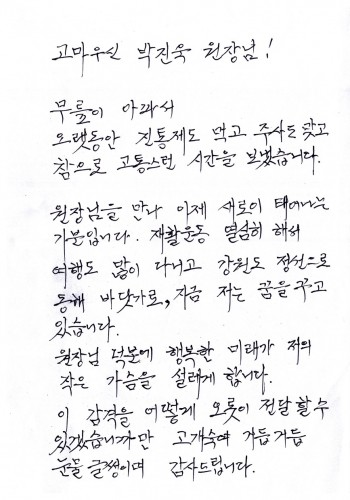 고마우신 박진욱 원장님!
무릎이 아파서
오랫동안 진통제도 먹고 주사도 맞고
참으로 고통스런 시간을 보냈습니다.
원장님을 만나 이제 새로이 태어나는
기분입니다. 재활운동 열심히 해서
여행도 많이 다니고 강원도 정선으로
동해 바닷가로, 지금 저는 꿈을 꾸고
있습니다.
원장님 덕분에 행복한 미래가 저의
작은 가슴을 설레게 합니다.
이 감격을 어떻게 오롯이 전달할 수
있겠습니까만 고개숙여 거듭거듭
눈물 글썽이며 감사드립니다.